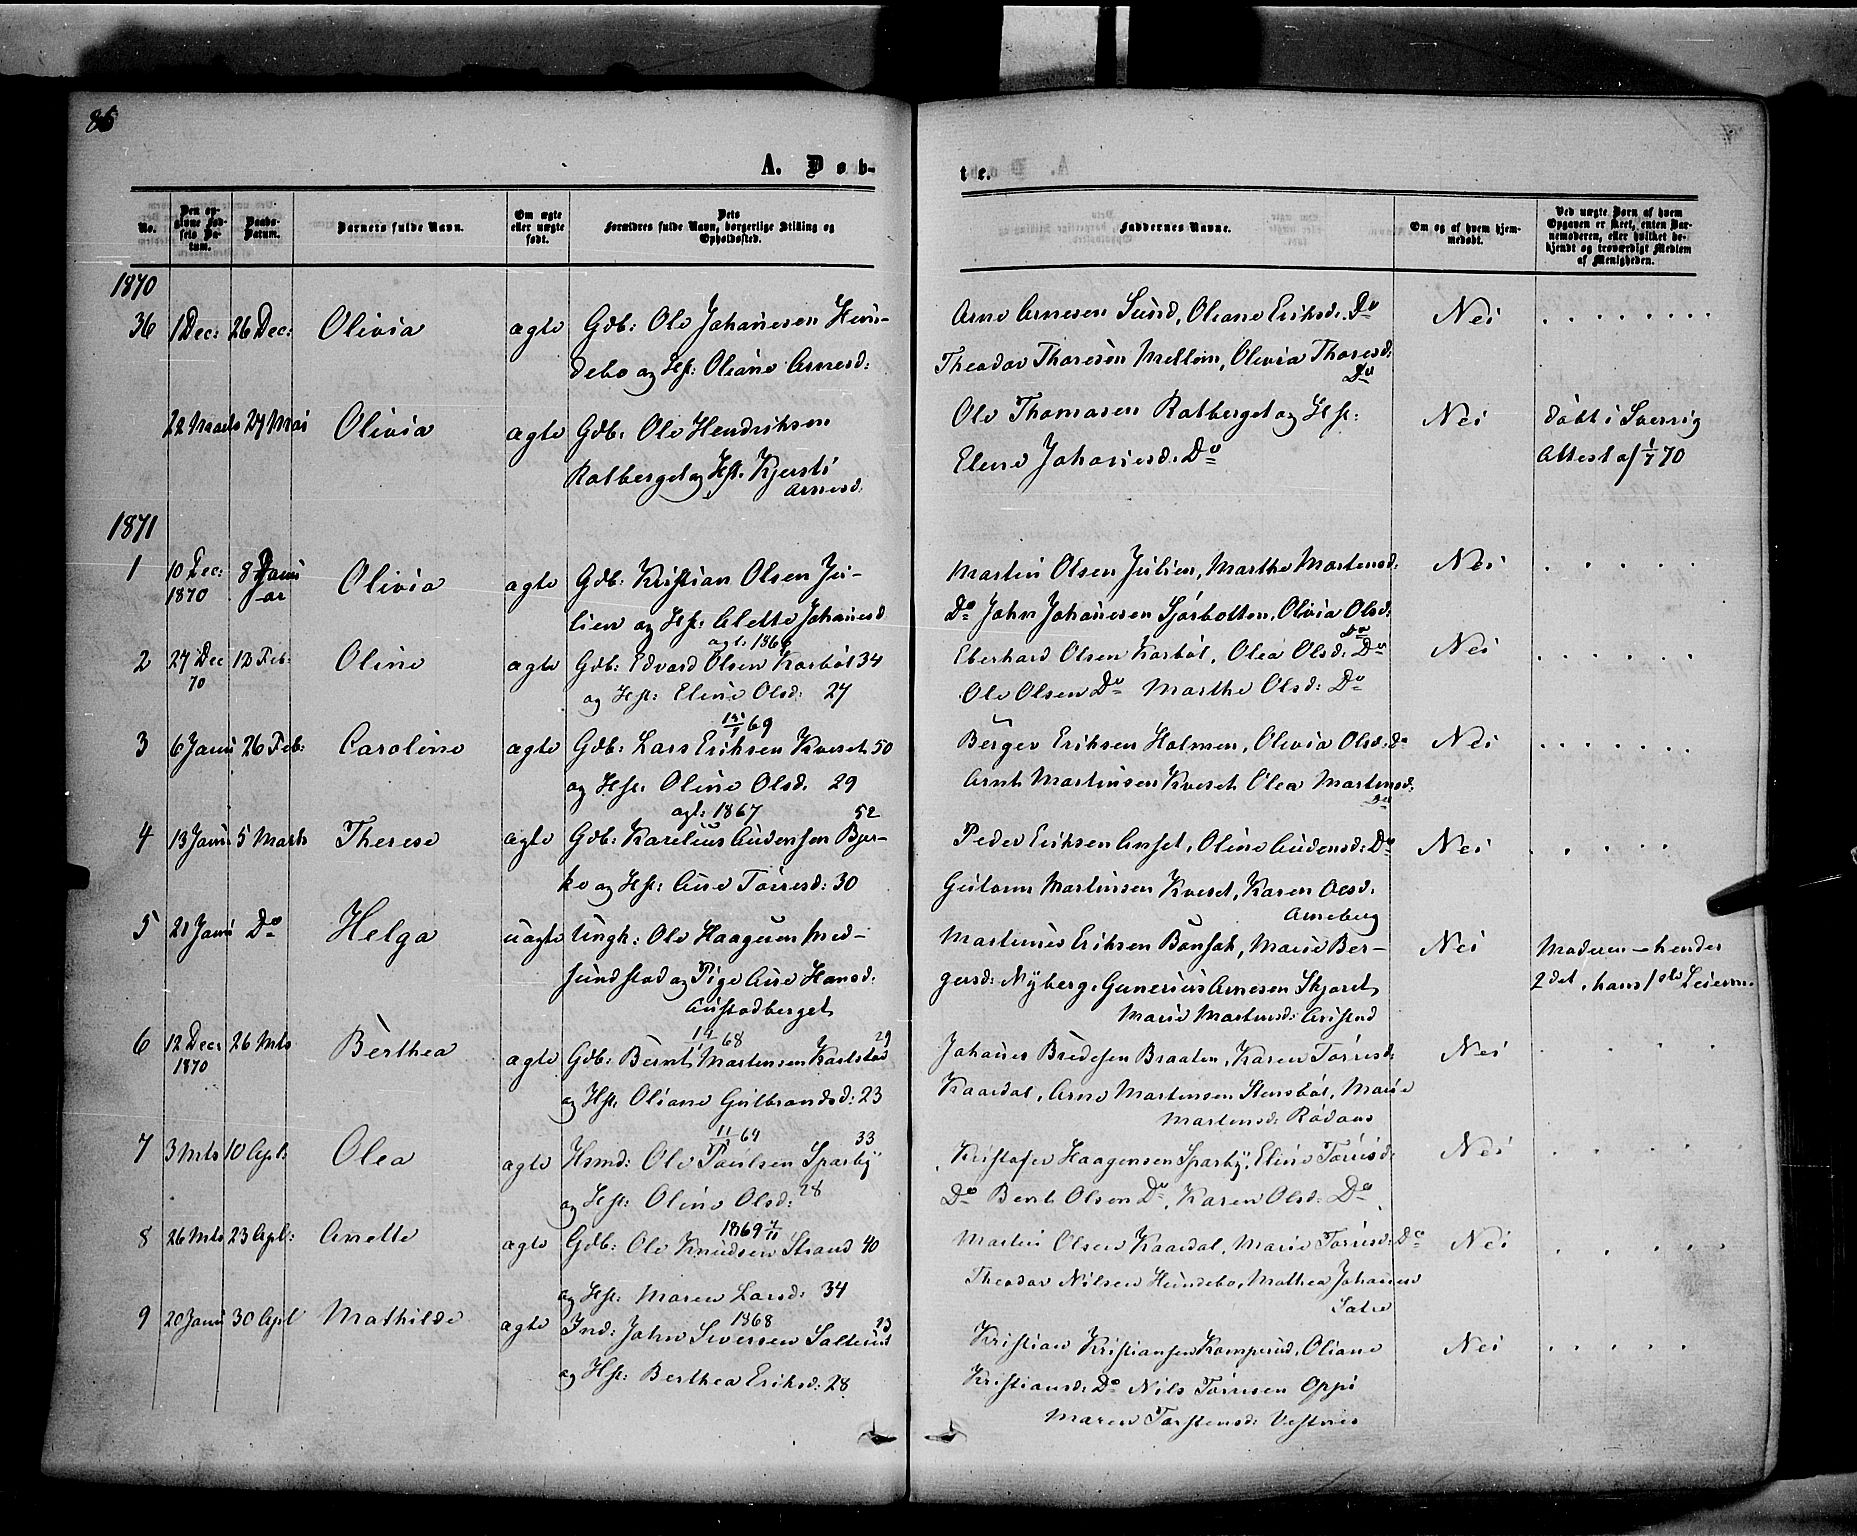 86
A. Døb-
te.
No.
Den op-
givne Fød-
sels Da-
tum.
Daabs-
Datum.
Barnets fulde Navn.
Om ægte
eller uægte
født.
Dets
Forældres fulde Navn, borgerlige Stilling og
Opholdssted.
Faddernes Navne.
Om og af hvem hjem-
medøbt.
Ved uægte Børn af hvem
Opgaven er skeet, enten Bar-
nemoderen, eller hvilket be-
kjendt og troværdigt Medlem
af Menigheden.
1870
36 1 Dec: 26 Dec: Olivia ægte Gdb: Ole Johannesen Hun-
debo og Hst: Oliane Arnesd:
Arne Arnesen Sund, Oliane Eriksd: Do
Theodor Thoresen Mellem, Olivia Thoresd:
Do
Nei
22 Marts 29 Mai Olivia ægte Gdb: Ole Hendriksen
Rotberget og Hst. Kjersti
Arnesd:
Ole Thomasen Rotberget og Hst:
Elene Johannesd: Do
Nei
døbt i Sverrig
Attest af 1/7 70
1871
1 10 Dec: 1870 8 Janu
ar Olivia ægte Gdb: Kristian Olsen Ju-
lien og Hst: Alette Johannesd
Martin Olsen Julien, Marthe Martensd:
Do John Johannesen Sjørbotten, Olivia Olsd:
Do
Nei
2 27 Dec 70 12 Feb: Oline ægte
agt. 1866
Gdb: Edvard Olsen Karbøl 34
og Hst: Eline Olsd: 27
Eberhard Olsen Karbøl, Olea Olsd: Do
Ole Olsen Do Marthe Olsd: Do
Nei
3 6 Janu 26 Feb: Caroline ægte
69
Gdb: Lars Eriksen Kveset 50
og Hst. Oline Olsd. 29
Berger Eriksen Holmen, Olivia Olsd: Do
Arnt Martinsen Kveset Olea Martensd:
Do
Nei
4 13 Janu 5 Marts Therese ægte
agt: 1867 52
Gdb: Karelius Audensen Bjer-
ke og Hst: Ane Torresd: 30
Peder Eriksen Anset, Oline Audensd: Do
Gulovn Martinsen Kveset, Karen Olsd:
Arneberg
Nei
5 21 Janu Do Helga uægte Ungk: Ole Haagensen Med-
sundstad og Pige Ane Hansd:
Austadberget
Martinus Eriksen Bonsak, Marie Ber-
gersd: Nyberg, Gunerius Arnesen Skjaret
Marie Martensd: Aristad
Nei
Moderen – hendes
2det, hans 1ste Leierm.
6 12 Dec: 1870 26 Mts Berthea ægte
68 29
Gdb: Bernt Martensen Karlstad
og Hst: Oliane Gulbrandsd: 23
Johannes Bredesen Braaten, Karen Torresd:
Kaardal, Arne Martensen Stensbøl, Marie
Martensd: Rødaas
Nei
7 3 Mts 10 Apl: Olea ægte
11 64 33
Hsmd: Ole Paulsen Sparby
og Hst: Oline Olsd: 28
Kristofer Haagensen Sparby, Eline Torresd:
Do Bent Olsen Do, Karen Olsd: Do
Nei
8 26 Mts 23 Apl: Anette ægte
1869
Gdb: Ole Knudsen Strand 40
og Hst: Maren Larsd: 34
Martin Olsen Kaardal, Marie Torresd: Do
Theodor Nilsen Hundebo, Mathea Johannesd
Satre
Nei
9 20 Janu 30 Apl Mathilde ægte
1868 23
Ind: John Siversen Salterud
og Hst: Berthea Eriksd: 28
Kristian Kristiansen Kamperud, Oliane
Kristiansd: Do Nils Torresen Oppi
Maren Torstensd: Vestnes
Nei